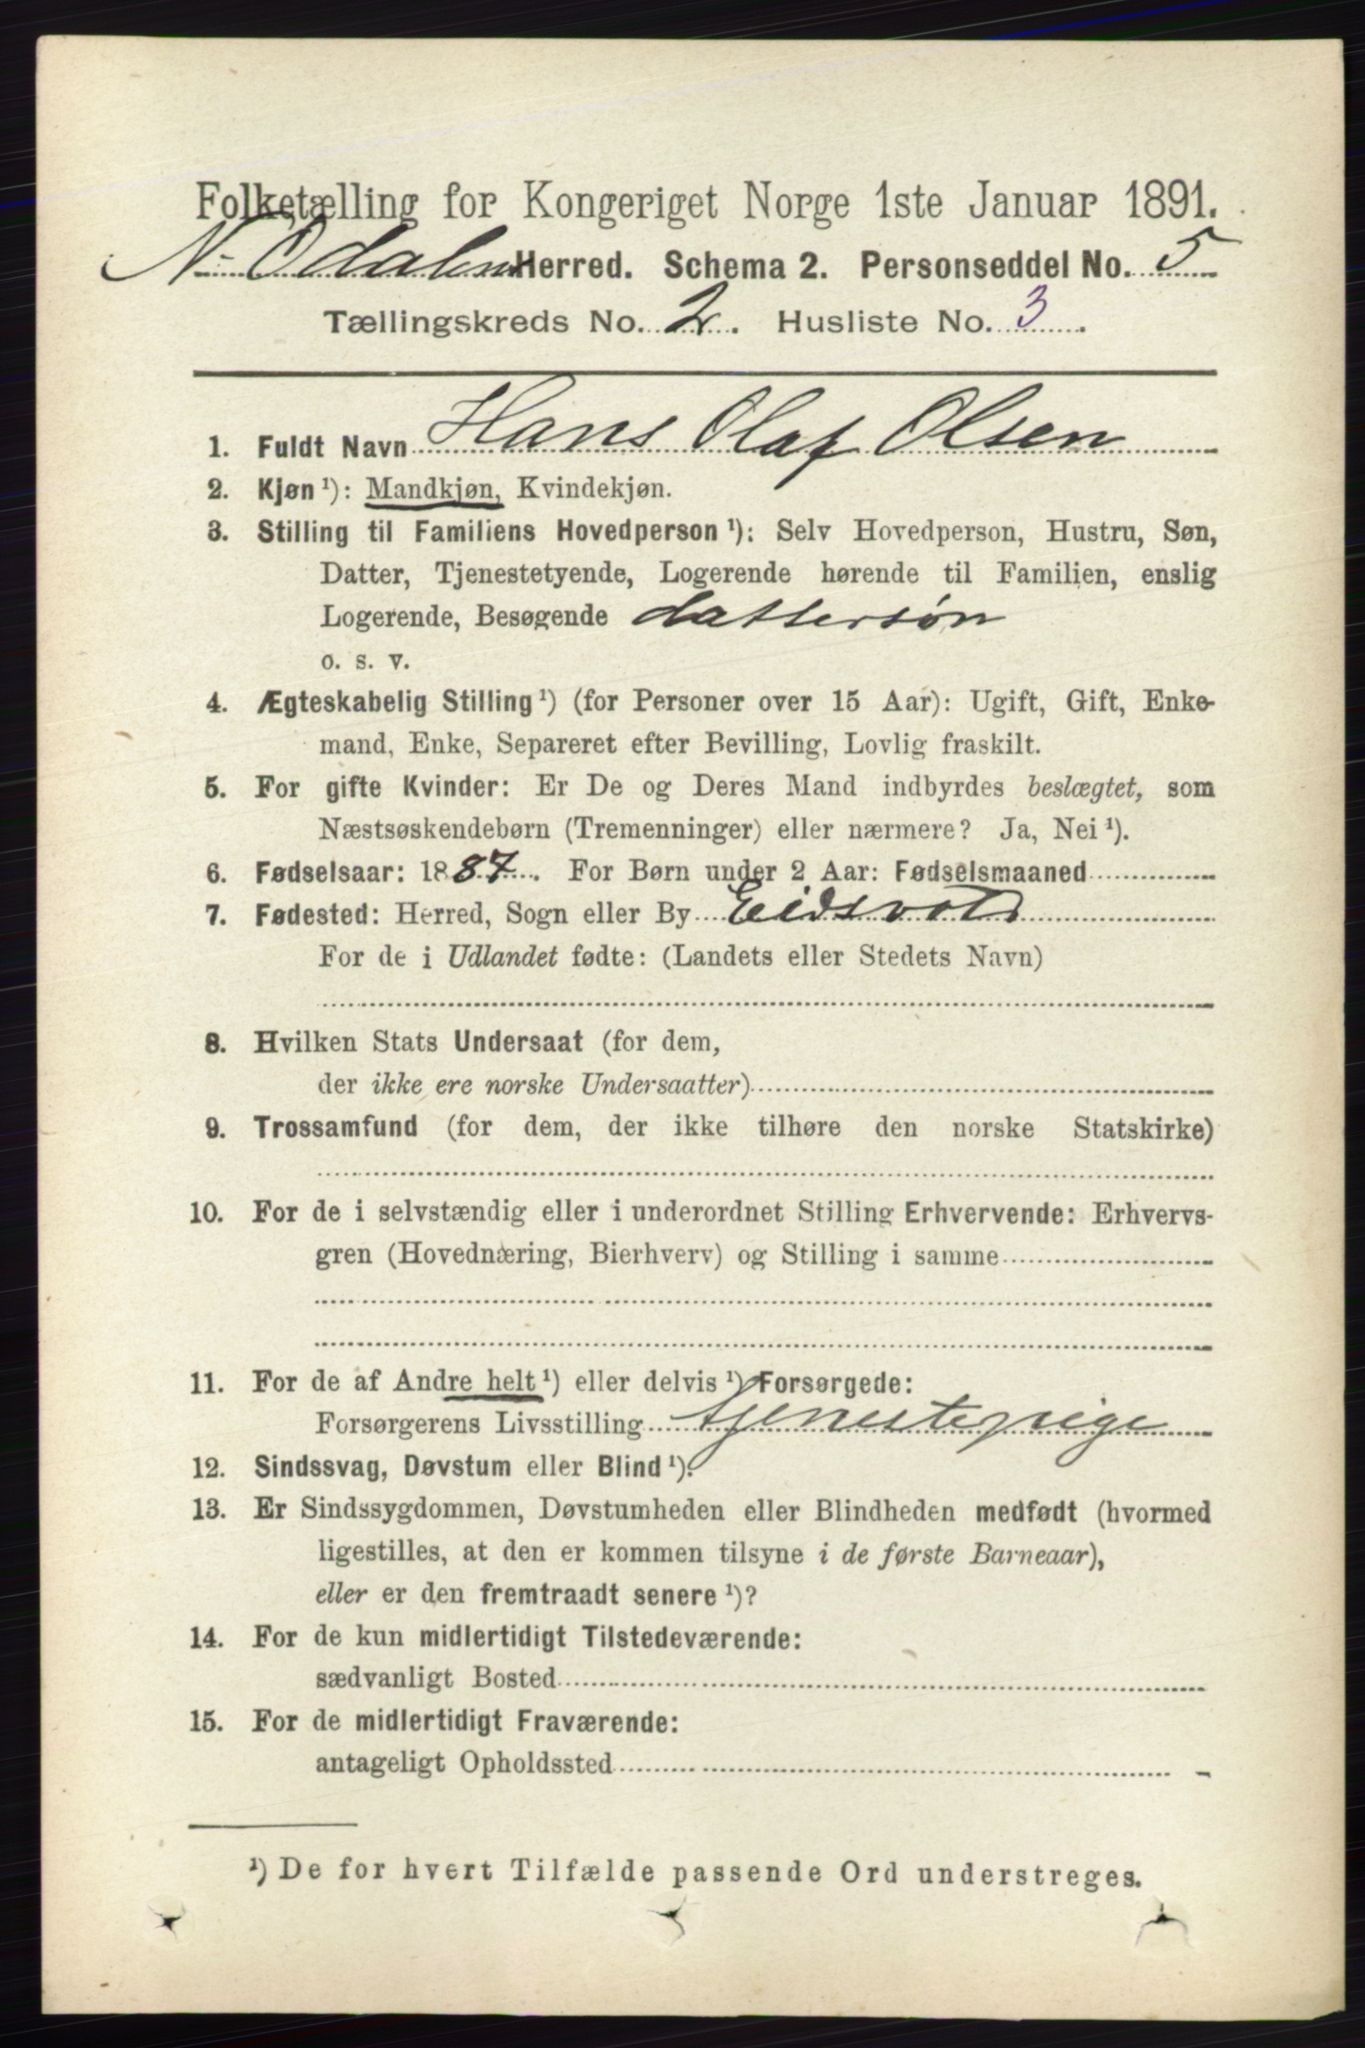 Folketælling for Kongeriget Norge 1ste Januar 1891.
N. Odalen Herred. Schema 2. Personseddel No. 5
Tællingskreds No. 2. Husliste No. 3.
1. Fuldt Navn Hans Olaf Olsen
2. Kjøn ¹): Mandkjøn, Kvindekjøn.
3. Stilling til Familiens Hovedperson ¹): Selv Hovedperson, Hustru, Søn,
Datter, Tjenestetyende, Logerende hørende til Familien, enslig
Logerende, Besøgende dattersøn
o. s. v.
4. Ægteskabelig Stilling ¹) (for Personer over 15 Aar): Ugift, Gift, Enke-
mand, Enke, Separeret efter Bevilling, Lovlig fraskilt.
5. For gifte Kvinder: Er De og Deres Mand indbyrdes beslægtet, som
Næstsøskendebørn (Tremenninger) eller nærmere? Ja, Nei ¹).
6. Fødselsaar: 1887. For Børn under 2 Aar: Fødselsmaaned
7. Fødested: Herred, Sogn eller By Eidsvold
For de i Udlandet fødte: (Landets eller Stedets Navn)
8. Hvilken Stats Undersaat (for dem,
der ikke ere norske Undersaatter)
9. Trossamfund (for dem, der ikke tilhøre den norske Statskirke)
10. For de i selvstændig eller i underordnet Stilling Erhvervende: Erhvervs-
gren (Hovednæring, Bierhverv) og Stilling i samme
11. For de af Andre helt ¹) eller delvis ¹) Forsørgede:
Forsørgerens Livsstilling tjenestepige
12. Sindssvag, Døvstum eller Blind ¹).
13. Er Sindssygdommen, Døvstumheden eller Blindheden medfødt (hvormed
ligestilles, at den er kommen tilsyne i de første Barneaar),
eller er den fremtraadt senere ¹)?
14. For de kun midlertidigt Tilstedeværende:
sædvanligt Bosted
15. For de midlertidigt Fraværende:
antageligt Opholdssted
¹) De for hvert Tilfælde passende Ord understreges.